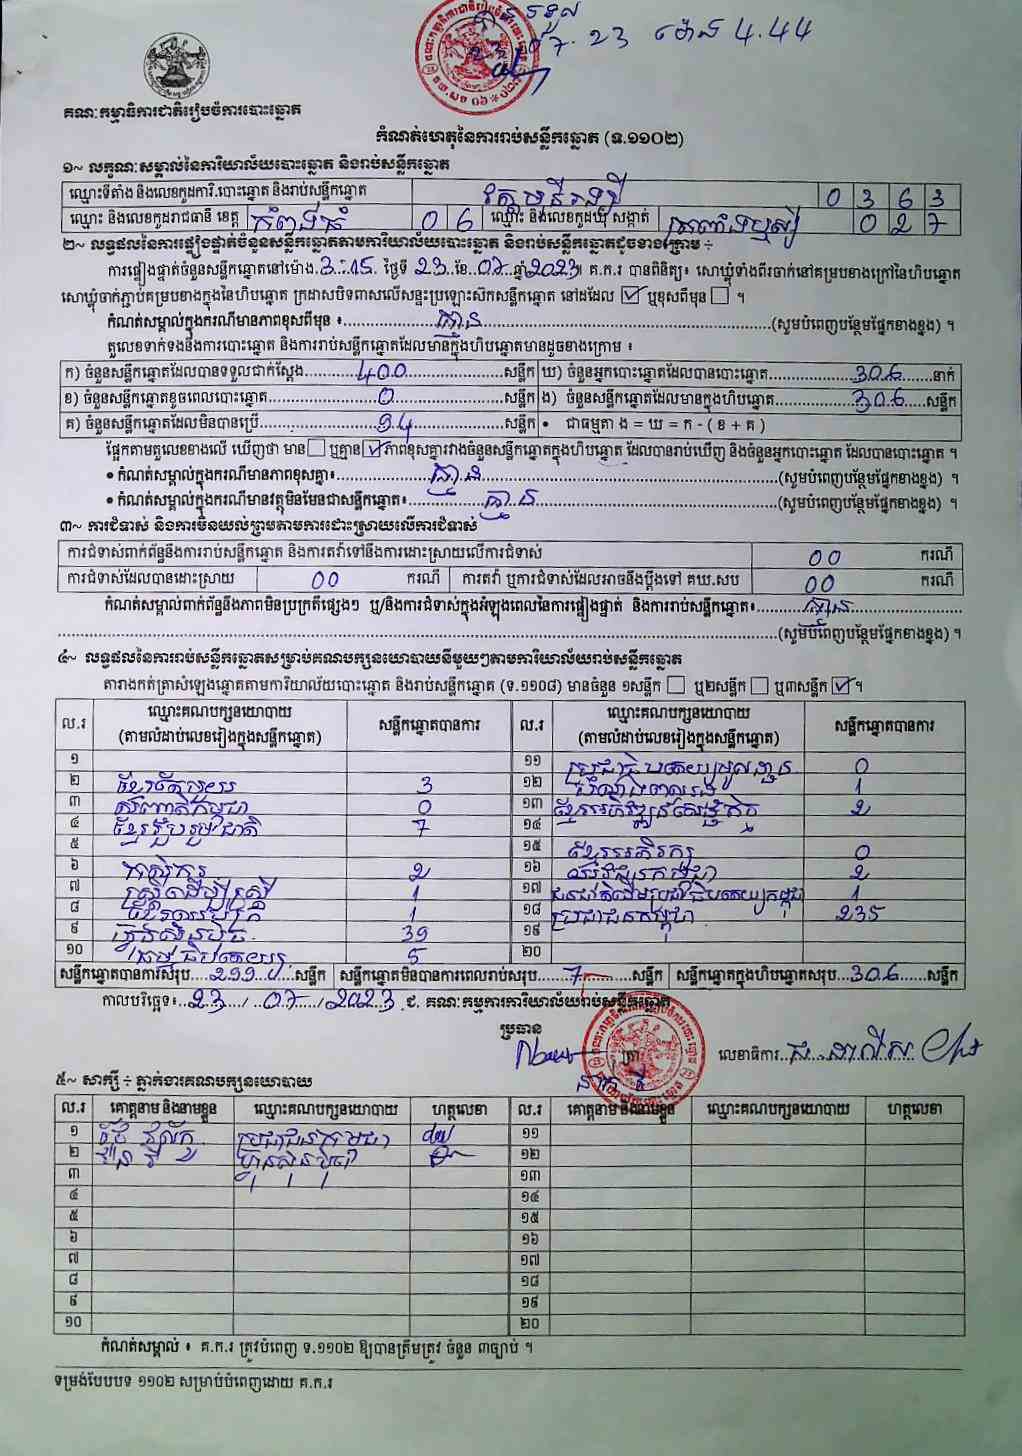 23 07. 23 ម៉ោង 4.44
គណៈកម្មាធិការជាតិរៀបចំការបោះឆ្នោត
កំណត់ហេតុនៃការរាប់សន្លឹកឆ្នោត (ទ.១១០២)
១~ លក្ខណៈសម្គាល់នៃការិយាល័យបោះឆ្នោត និងរាប់សន្លឹកឆ្នោត
ឈ្មោះទីតាំង និងលេខកូដការិ.បោះឆ្នោត និងរាប់សន្លឹកឆ្នោត 0 3 6 3
ឈ្មោះ និងលេខកូដរាជធានី ខេត្ត កំពង់ធំ 0 6 ឈ្មោះ និងលេខកូដឃុំ សង្កាត់ ត្រពាំងឫស្សី 0 2 7
២~ លទ្ធផលនៃការផ្ទៀងផ្ទាត់ចំនួនសន្លឹកឆ្នោតតាមការិយាល័យបោះឆ្នោត និងរាប់សន្លឹកឆ្នោតដូចខាងក្រោម ÷
ការផ្ទៀងផ្ទាត់ចំនួនសន្លឹកឆ្នោតនៅម៉ោង 3:15 ថ្ងៃទី 23 ខែ 07 ឆ្នាំ 2023 គ.ក.រ បានពិនិត្យ៖ សោឃ្លុំទាំងពីរចាក់នៅគម្របខាងក្រៅនៃហិបឆ្នោត
សោឃ្លុំចាក់ភ្ជាប់គម្របខាងក្នុងនៃហិបឆ្នោត ក្រដាសបិទពាសលើសន្ទះប្រឡោះស៊កសន្លឹកឆ្នោត នៅដដែល ☑ ឬខុសពីមុន ☐ ។
កំណត់សម្គាល់ក្នុងករណីមានភាពខុសពីមុន ៖ គ្មាន (សូមបំពេញបន្ថែមផ្នែកខាងខ្នង) ។
តួលេខទាក់ទងនឹងការបោះឆ្នោត និងការរាប់សន្លឹកឆ្នោតដែលមានក្នុងហិបឆ្នោតមានដូចខាងក្រោម ៖
ក) ចំនួនសន្លឹកឆ្នោតដែលបានទទួលជាក់ស្ដែង 400 សន្លឹក ឃ) ចំនួនអ្នកបោះឆ្នោតដែលបានបោះឆ្នោត 306 នាក់
ខ) ចំនួនសន្លឹកឆ្នោតខូចពេលបោះឆ្នោត 0 សន្លឹក ង) ចំនួនសន្លឹកឆ្នោតដែលមានក្នុងហិបឆ្នោត 306 សន្លឹក
គ) ចំនួនសន្លឹកឆ្នោតដែលមិនបានប្រើ 94 សន្លឹក • ជាធម្មតា ង = ឃ = ក - ( ខ + គ )
ផ្អែកតាមតួលេខខាងលើ ឃើញថា មាន ☐ ឬគ្មាន ☑ ភាពខុសគ្នារវាងចំនួនសន្លឹកឆ្នោតក្នុងហិបឆ្នោត ដែលបានរាប់ឃើញ និងចំនួនអ្នកបោះឆ្នោត ដែលបានបោះឆ្នោត ។
• កំណត់សម្គាល់ក្នុងករណីមានភាពខុសគ្នា៖ គ្មាន (សូមបំពេញបន្ថែមផ្នែកខាងខ្នង) ។
• កំណត់សម្គាល់ក្នុងករណីមានវត្ថុមិនមែនជាសន្លឹកឆ្នោត៖ គ្មាន (សូមបំពេញបន្ថែមផ្នែកខាងខ្នង) ។
៣~ ការជំទាស់ និងការមិនយល់ព្រមតាមការដោះស្រាយលើការជំទាស់
ការជំទាស់ពាក់ព័ន្ធនឹងការរាប់សន្លឹកឆ្នោត និងការតវ៉ាទៅនឹងការដោះស្រាយលើការជំទាស់ 00 ករណី
ការជំទាស់ដែលបានដោះស្រាយ 00 ករណី ការតវ៉ា ឬការជំទាស់ដែលអាចនឹងប្ដឹងទៅ គឃ.សប 00 ករណី
កំណត់សម្គាល់ពាក់ព័ន្ធនឹងភាពមិនប្រក្រតីផ្សេងៗ ឬ/និងការជំទាស់ក្នុងអំឡុងពេលនៃការផ្ទៀងផ្ទាត់ និងការរាប់សន្លឹកឆ្នោត៖ គ្មាន
(សូមបំពេញបន្ថែមផ្នែកខាងខ្នង) ។
៤~ លទ្ធផលនៃការរាប់សន្លឹកឆ្នោតសម្រាប់គណបក្សនយោបាយនីមួយៗតាមការិយាល័យរាប់សន្លឹកឆ្នោត
តារាងកត់ត្រាសំឡេងឆ្នោតតាមការិយាល័យបោះឆ្នោត និងរាប់សន្លឹកឆ្នោត (ទ.១១០៨) មានចំនួន ១សន្លឹក ☐ ឬ២សន្លឹក ☐ ឬ៣សន្លឹក ☑ ។
ល.រ ឈ្មោះគណបក្សនយោបាយ (តាមលំដាប់លេខរៀងក្នុងសន្លឹកឆ្នោត) សន្លឹកឆ្នោតបានការ ល.រ ឈ្មោះគណបក្សនយោបាយ (តាមលំដាប់លេខរៀងក្នុងសន្លឹកឆ្នោត) សន្លឹកឆ្នោតបានការ
១ ១១ ប្រជាធិបតេយ្យមូលដ្ឋាន 0
២ ខ្មែរតែមួយ 3 ១២ 1
៣ សញ្ជាតិកម្ពុជា 0 ១៣ ខ្មែរអភិវឌ្ឍន៍សេដ្ឋកិច្ច 2
៤ ខ្មែររួបរួមជាតិ 7 ១៤
៥ ១៥ ខ្មែរអភិរក្ស 0
៦ កសិករ 2 ១៦ 2
៧ ស្ត្រីដើម្បីស្ត្រី 1 ១៧ ជនជាតិដើមប្រជាធិបតេយ្យកម្ពុជា 1
៨ 1 ១៨ ប្រជាជនកម្ពុជា 235
៩ ហ្វ៊ុនស៊ិនប៉ិច 39 ១៩
១០ ធម្មាធិបតេយ្យ 5 ២០
សន្លឹកឆ្នោតបានការសរុប 299 សន្លឹក សន្លឹកឆ្នោតមិនបានការពេលរាប់សរុប 7 សន្លឹក សន្លឹកឆ្នោតក្នុងហិបឆ្នោតសរុប 306 សន្លឹក
កាលបរិច្ឆេទ៖ 23 / 07 / 2023 ជ. គណៈកម្មការការិយាល័យរាប់សន្លឹកឆ្នោត
ប្រធាន
លេខាធិការ
៥~ សាក្សី ÷ ភ្នាក់ងារគណបក្សនយោបាយ
ល.រ គោត្តនាម និងនាមខ្លួន ឈ្មោះគណបក្សនយោបាយ ហត្ថលេខា ល.រ គោត្តនាម និងនាមខ្លួន ឈ្មោះគណបក្សនយោបាយ ហត្ថលេខា
១ ប្រជាជនកម្ពុជា ១១
២ ហ្វ៊ុនស៊ិនប៉ិច ១២
៣ ១៣
៤ ១៤
៥ ១៥
៦ ១៦
៧ ១៧
៨ ១៨
៩ ១៩
១០ ២០
កំណត់សម្គាល់ ៖ គ.ក.រ ត្រូវបំពេញ ទ.១១០២ ឱ្យបានត្រឹមត្រូវ ចំនួន ៣ច្បាប់ ។
ទម្រង់បែបបទ ១១០២ សម្រាប់បំពេញដោយ គ.ក.រ